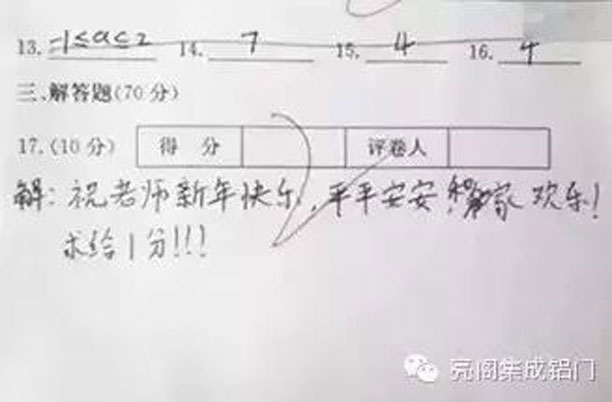 13. -1≤a≤2 14. 7 15. 4 16. 4
三、解答题(70分)
17.(10分) 得 分 评卷人
解:祝老师新年快乐,平平安安!家欢乐!
求给1分!!!
亮阁集成铝门